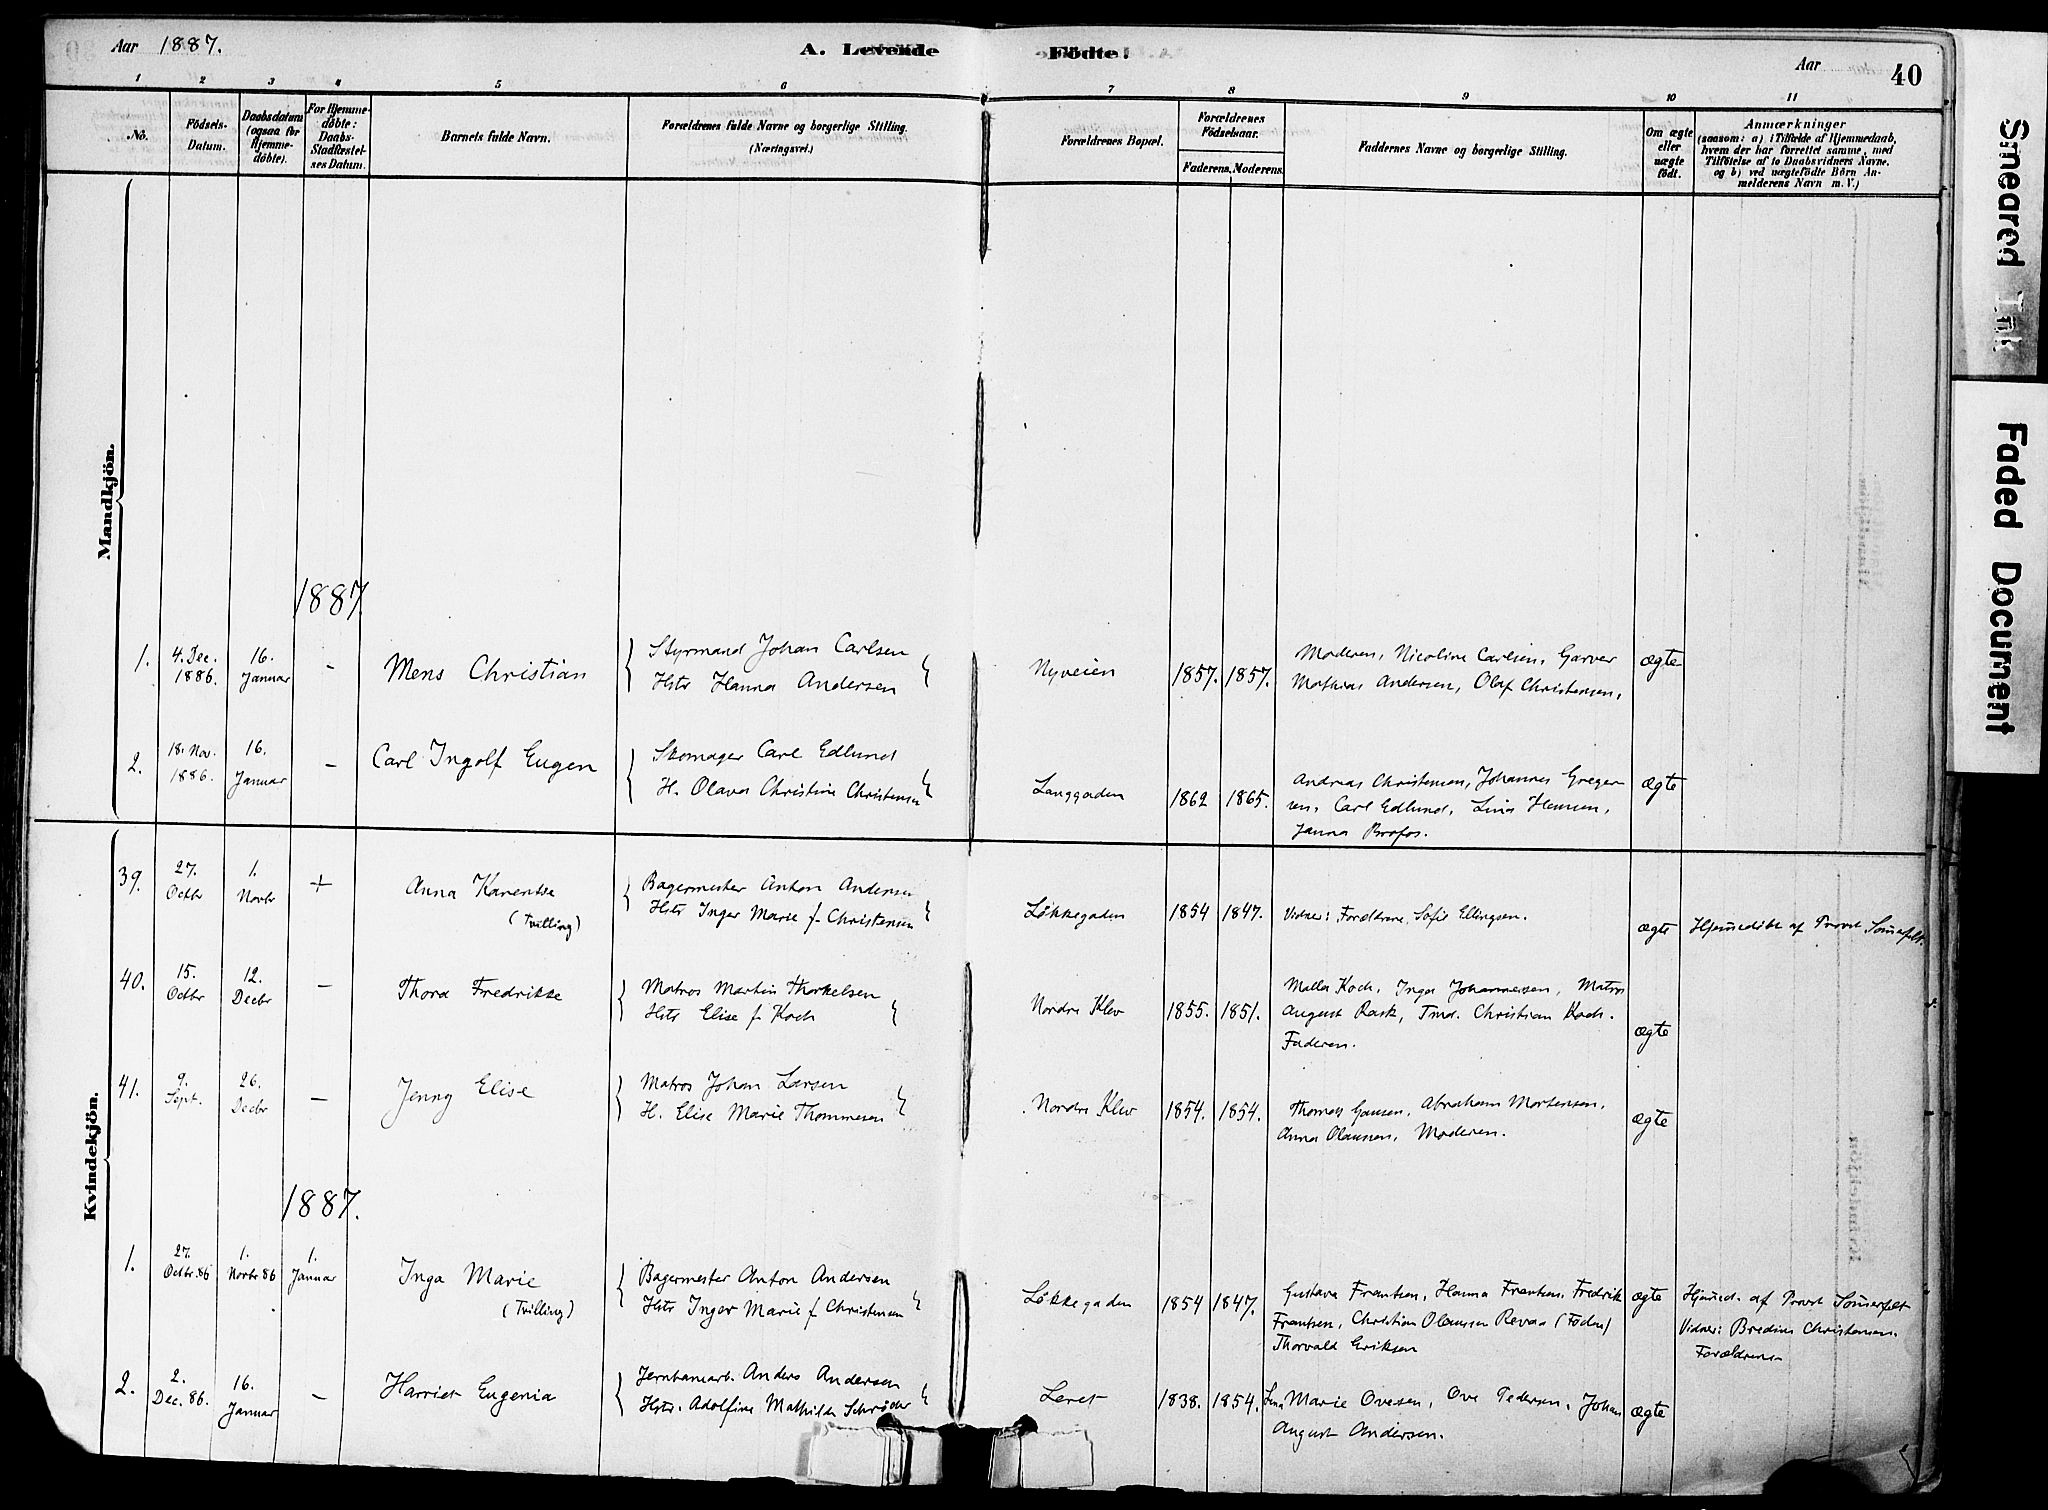 Aar 1887.
A. Levende Födte.
Aar
40
1 2 3 4 5 6 7 8 9 10 11
No.
Födsels-
Datum.
Daabsdatum
(ogsaa for
Hjemme-
döbte).
For Hjemme-
döbte:
Daabs-
Stadfæstel-
ses Datum.
Barnets fulde Navn.
Forældrenes fulde Navne og borgerlige Stilling.
(Næringsvei.)
Forældrenes Bopæl.
Forældrenes
Födselsaar.
Faderens. Moderens.
Faddernes Navne og borgerlige Stilling.
Om ægte
eller
uægte
födt.
Anmærkninger
(saasom: a) i Tilfælde af Hjemmedaab,
hvem der har forrettet samme, med
Tilföielse af to Daabsvidners Navne.
og b) ved uægtefödte Börn An-
melderens Navn m. V.)
Smeared Ink
Faded Document
Mandkjön.
1887.
1. 4. Dec. 1886. 16. Januar - Mens Christian
Styrmand Johan Carlsen
Hstr Hanna Andersen
Nyveien 1857. 1857.
Moderen, Nicoline Carlsen, Garver
Mathias Andersen, Olaf Christensen,
ægte
2. 18. Nov. 1886. 16. Januar - Carl Ingolf Eugen
Skomager Carl Edlund
H. Olava Christine Christensen
Langgaden 1862 1865.
Andreas Christensen, Johannes Greger
sen, Carl Edlund, Lina Hansen,
Janna Brofos.
ægte
Kvindekjön.
39. 27. Octbr 1. Novbr + Anna Karentse
(Tvilling)
Bagermester Anton Andersen
Hstr Inger Marie f. Christensen
Løkkegaden 1854 1847.
Vidner: Forældrene, Sofie Ellingsen.
ægte
Hjemmedøbt af Provst Sommerfelt.
40. 15. Octbr 12. Decbr - Thora Fredrikke
Matros Martin Thorkelsen
Hstr Elise f. Koch
Nordre Klev 1855. 1851.
Malla Koch, Inga Johannesen, Matros
August Rask, Tmd. Christian Koch.
Faderen.
ægte
41. 9. Sept. 26. Decbr - Jenny Elise
Matros Johan Larsen
H. Elise Marie Thommesen
Nordre Klev 1854. 1854.
Thomas Gausen, Abraham Mortensen,
Anna Olaussen, Moderen.
ægte
1887.
1. 27. Octbr. 86 1. Novbr 86 1. Januar Inga Marie
(Tvilling)
Bagermester Anton Andersen
Hstr Inger Marie f. Christensen
Løkkegaden 1854 1847.
Gustava Frantsen, Hanna Frantsen, Fredrik
Frantsen, Christian Olaussen Revaa (Fødn)
Thorvald Eriksen
ægte
Hjemmed. af Provst Sommerfelt
Vidner: Bredine Christensen.
Forældrene
2. 2. Dec. 86. 16. Januar - Harriet Eugenia
Jernbanearb. Anders Andersen
Hstr. Adolfine Mathilde Schrøder
Leret 1838. 1854.
Lina Marie Ovesen, Ove Pedersen, Johan
August Andersen.
ægte